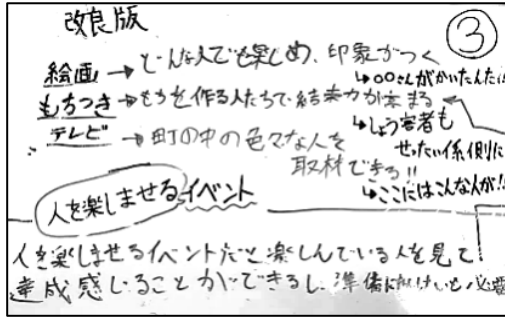 改良版
③
絵画→どんな人でも楽しめ、印象がつく
↳〇〇さんがかいたんだ!!
もちつき→もちを作る人たちで結束力が深まる
↳しょう害者も
せったい係側に
テレビ→町の中の色々な人を
取材できる!!
↳ここにはこんな人が!!
人を楽しませるイベント
人を楽しませるイベントだと楽しんでいる人を見て
達成感じることができるし、準備